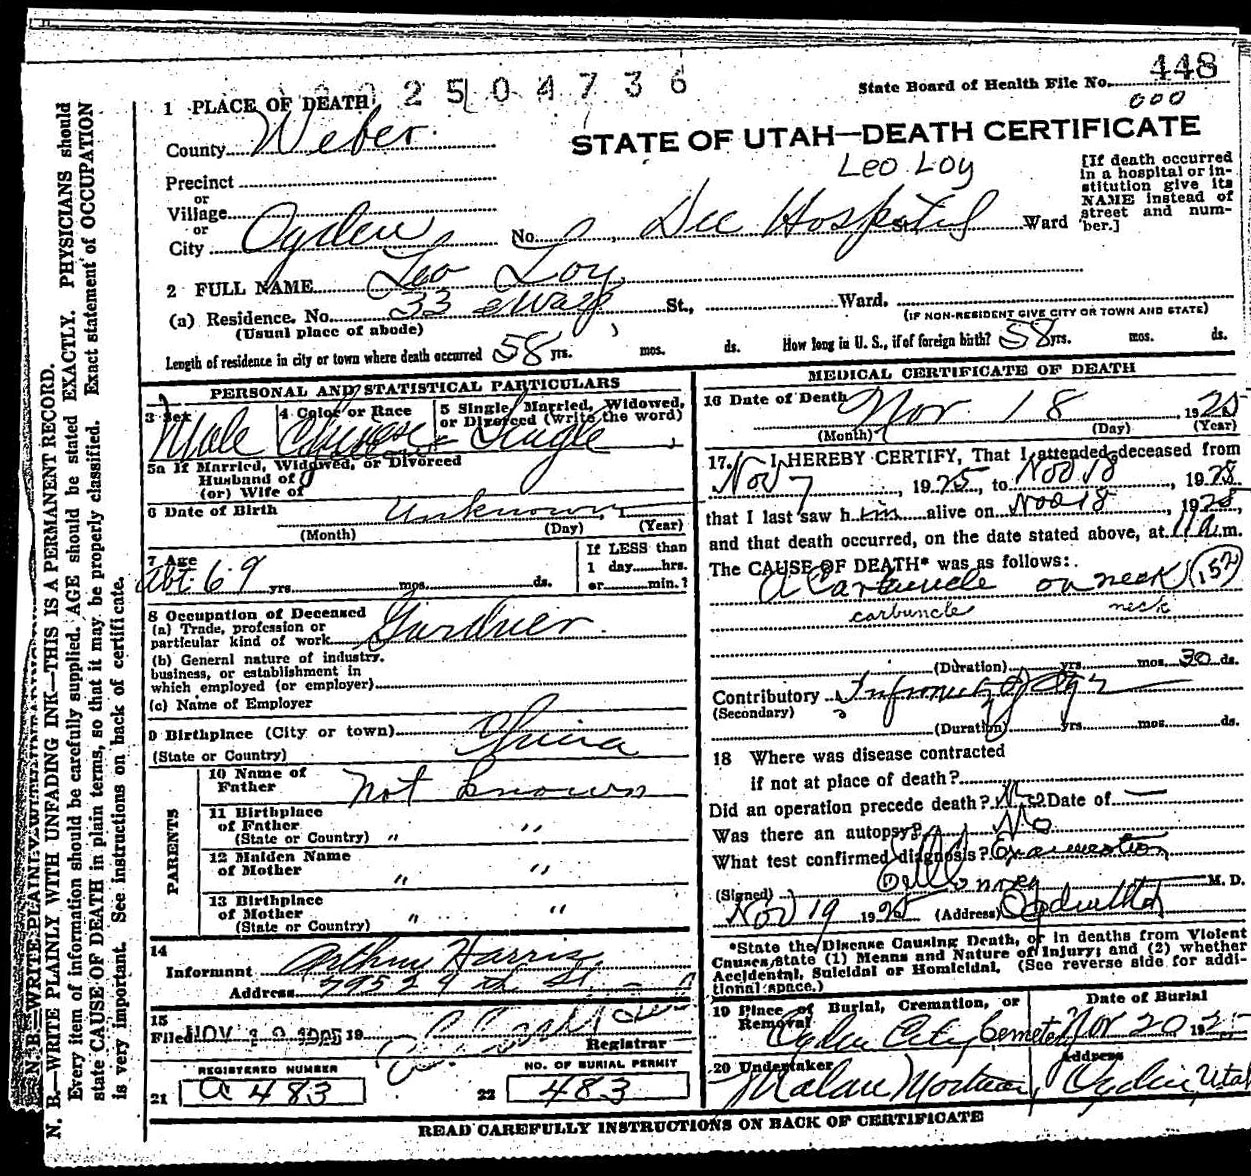 2504736
State Board of Health File No. 448
000
1 PLACE OF DEATH
STATE OF UTAH—DEATH CERTIFICATE
County Weber
Leo Loy
Precinct
or
Village
or
City Ogden No. Dee Hospital St. Ward
[If death occurred
in a hospital or in-
stitution give its
NAME instead of
street and num-
ber.]
2 FULL NAME Leo Loy
(a) Residence. No. 33 St., Ward.
(Usual place of abode)
(IF NON-RESIDENT GIVE CITY OR TOWN AND STATE)
Length of residence in city or town where death occurred 58 yrs. mos. ds. How long in U. S., if of foreign birth? 58 yrs. mos. ds.
PERSONAL AND STATISTICAL PARTICULARS
3 Sex
Male
4 Color or Race
Chinese
5 Single, Married, Widowed,
or Divorced (write the word)
Single
5a If Married, Widowed, or Divorced
Husband of
(or) Wife of
6 Date of Birth Unknown
(Month) (Day) (Year)
7 Age
Abt 69 yrs mos. ds.
If LESS than
1 day hrs.
or min.?
8 Occupation of Deceased
(a) Trade, profession or
particular kind of work Gardner
(b) General nature of industry,
business, or establishment in
which employed (or employer)
(c) Name of Employer
9 Birthplace (City or town) China
(State or Country)
PARENTS
10 Name of
Father not known
11 Birthplace
of Father
(State or Country) " "
12 Maiden Name
of Mother " "
13 Birthplace
of Mother
(State or Country) " "
14
Informant Arthur Harris
Address
15
Filed NOV 1925 19
Registrar
REGISTERED NUMBER
21 a 483
NO. OF BURIAL PERMIT
22 483
MEDICAL CERTIFICATE OF DEATH
16 Date of Death Nov 18, 1925
(Month) (Day) (Year)
17. I HEREBY CERTIFY, That I attended deceased from
Nov 7, 1925, to Nov 18, 1925
that I last saw him alive on Nov 18, 1925,
and that death occurred, on the date stated above, at 11 a.m.
The CAUSE OF DEATH* was as follows:
A Carbuncle on neck (152)
carbuncle neck
(Duration) yrs. mos. 30 ds.
Contributory Infirmity of Age
(Secondary)
(Duration) yrs. mos. ds.
18 Where was disease contracted
if not at place of death?
Did an operation precede death? No Date of —
Was there an autopsy? No
What test confirmed diagnosis? Examination
(Signed) M. D.
Nov 19 1925 (Address) Ogden Utah
*State the Disease Causing Death, or in deaths from Violent
Causes, state (1) Means and Nature of Injury; and (2) whether
Accidental, Suicidal or Homicidal. (See reverse side for addi-
tional space.)
19 Place of Burial, Cremation, or
Removal
Ogden City Cemetery
Date of Burial
Nov 20 1925
20 Undertaker
Malan Mortuary
Address
Ogden, Utah
READ CAREFULLY INSTRUCTIONS ON BACK OF CERTIFICATE
N. B.—WRITE PLAINLY WITH UNFADING INK—THIS IS A PERMANENT RECORD.
Every item of information should be carefully supplied. AGE should be stated EXACTLY. PHYSICIANS should
state CAUSE OF DEATH in plain terms, so that it may be properly classified. Exact statement of OCCUPATION
is very important. See instructions on back of certificate.